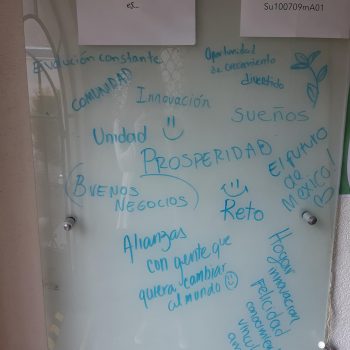 es_
Su100709mA01
Evolución constante
Oportunidad
de crecimiento
divertido
COMUNIDAD
Innovación
SUEÑOS
Unidad
PROSPERIDAD
El futuro
de
México!
BUENOS
NEGOCIOS
Reto
Alianzas
con gente que
quiera cambiar
al mundo
Hogar
innovación
felicidad